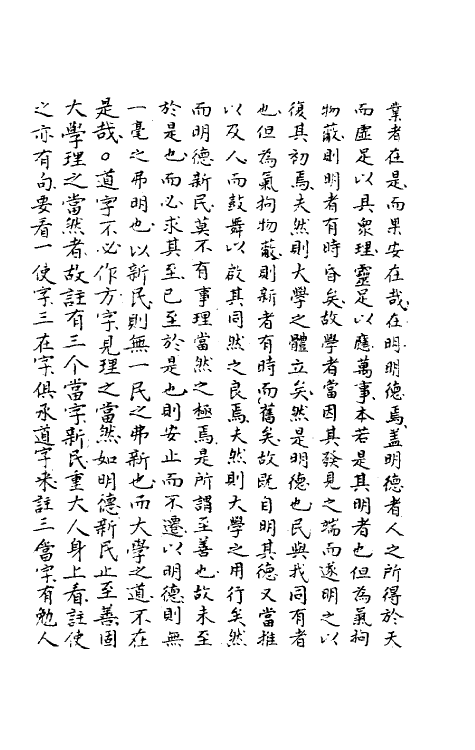 業者在是而果安在哉在明明德焉盖明德者人之所得於天
而虛足以具衆理靈足以應萬事本若是其明者也但為氣拘
物蔽則明者有時昏矣故學者當因其發見之端而遂明之以
復其初焉夫然則大學之體立矣然是明德也民與我同有者
也但為氣拘物蔽則新者有時而舊矣故既自明其德又當推
以及人而鼓舞以啟其同然之良焉夫然則大學之用行矣然
而明德新民莫不有事理當然之極焉是所謂至善也故未至
於是也而必求其至已至於是也則安止而不遷以明德則無
一毫之弗明也以新民則無一民之弗新也而大學之道不在
是哉○道字不必作方字見理之當然如明德新民止至善固
大學理之當然者故註有三个當字新民重大人身上看註使
之亦有句要看一使字三在字俱承道字来註三當字有勉人